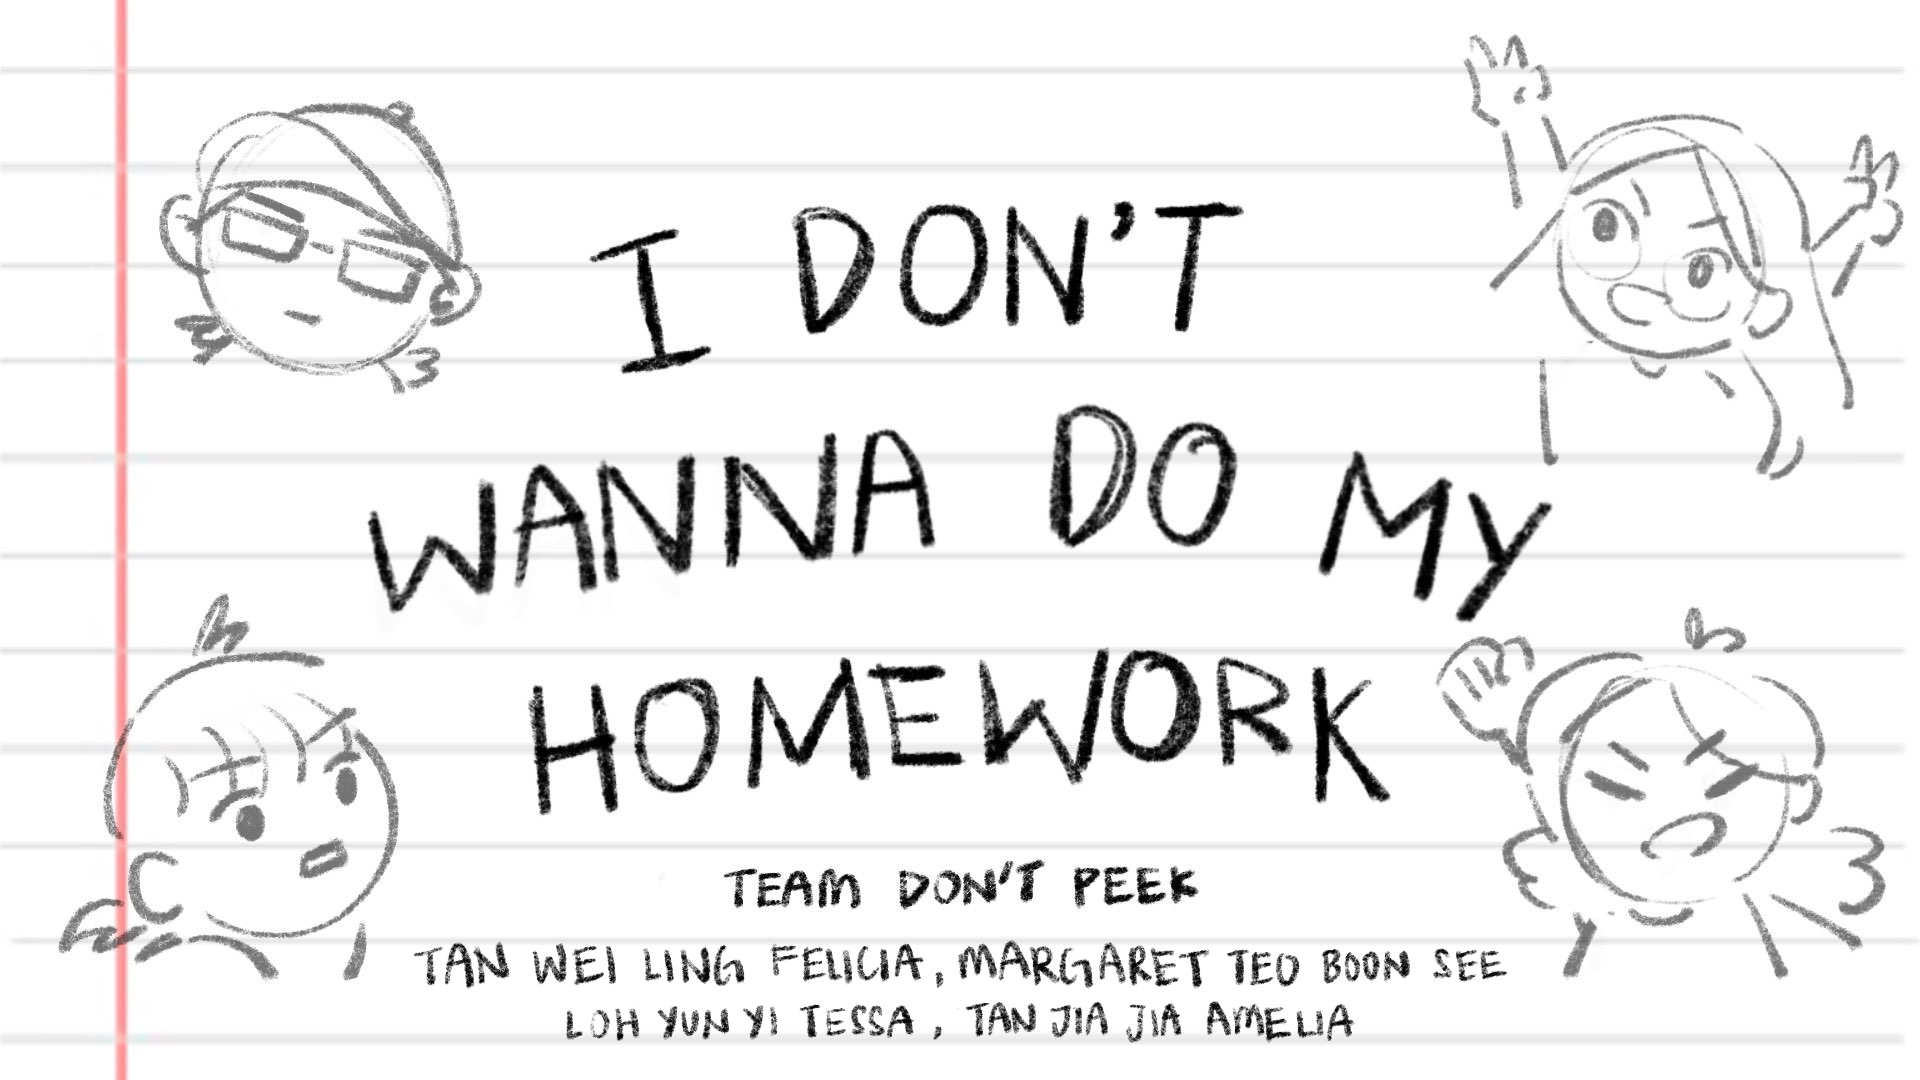 I DON'T
WANNA DO MY
HOMEWORK
TEAM DON'T PEEK
TAN WEI LING FELICIA, MARGARET TEO BOON SEE
LOH YUN YI TESSA, TAN JIA JIA AMELIA